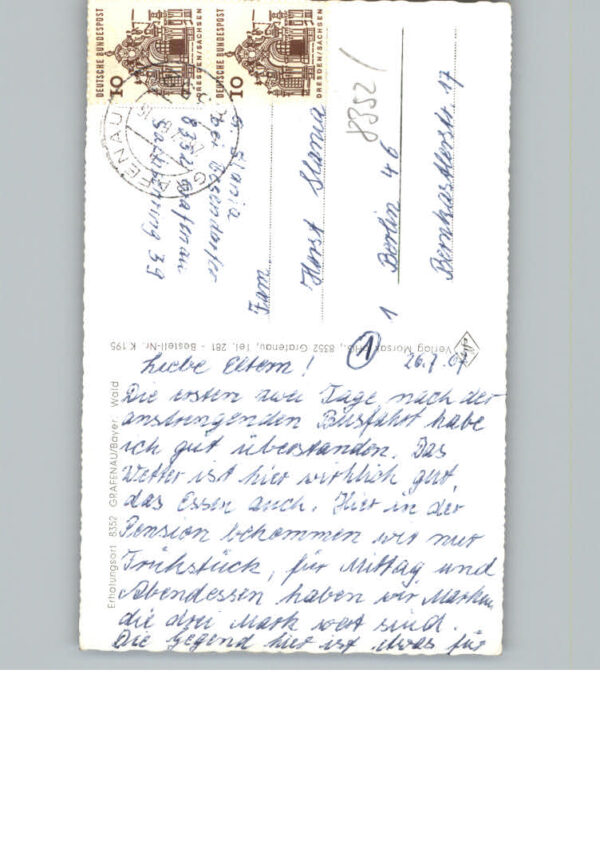 DEUTSCHE BUNDESPOST
10
DRESDEN/SACHSEN
DEUTSCHE BUNDESPOST
10
DRESDEN/SACHSEN
GRAFENAU
8352
H. Slania
bei Wesendorfer
8352 Grafenau
Sachsenring 39
Fam.
Horst Slania
1 Berlin 46
Bernhardtstr. 17
Verlag Morsak OHG., 8352 Grafenau, Tel. 281 - Bestell-Nr. K 195
Erholungsort 8352 GRAFENAU/Bayer. Wald
1
26.7.67
Liebe Eltern!
Die ersten zwei Tage nach der
anstrengenden Busfahrt habe
ich gut überstanden. Das
Wetter ist hier wirklich gut,
das Essen auch. Hier in der
Pension bekommen wir nur
Frühstück, für Mittag und
Abendessen haben wir Marken,
die drei Mark wert sind.
Die Gegend hier ist etwas für